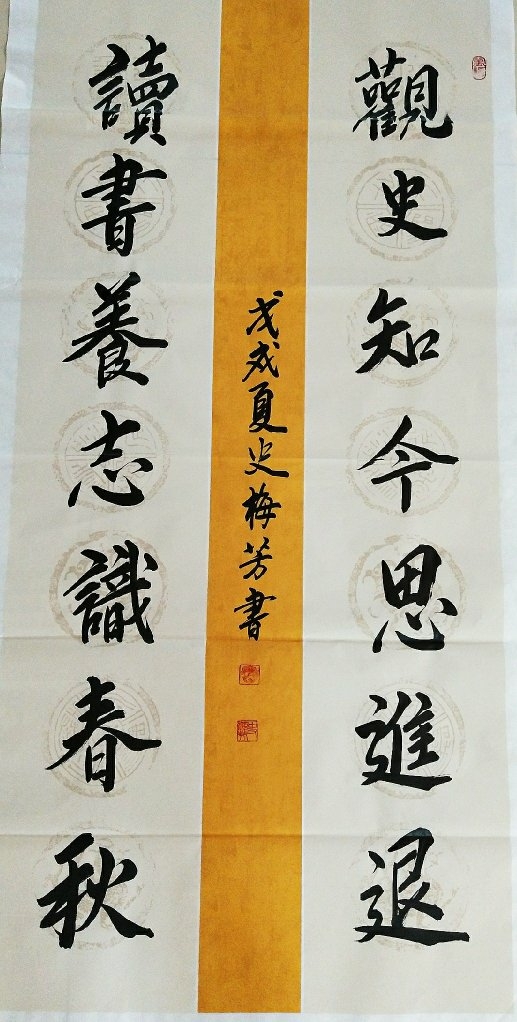 觀史知今思進退
讀書養志識春秋
戊戌夏史梅芳書